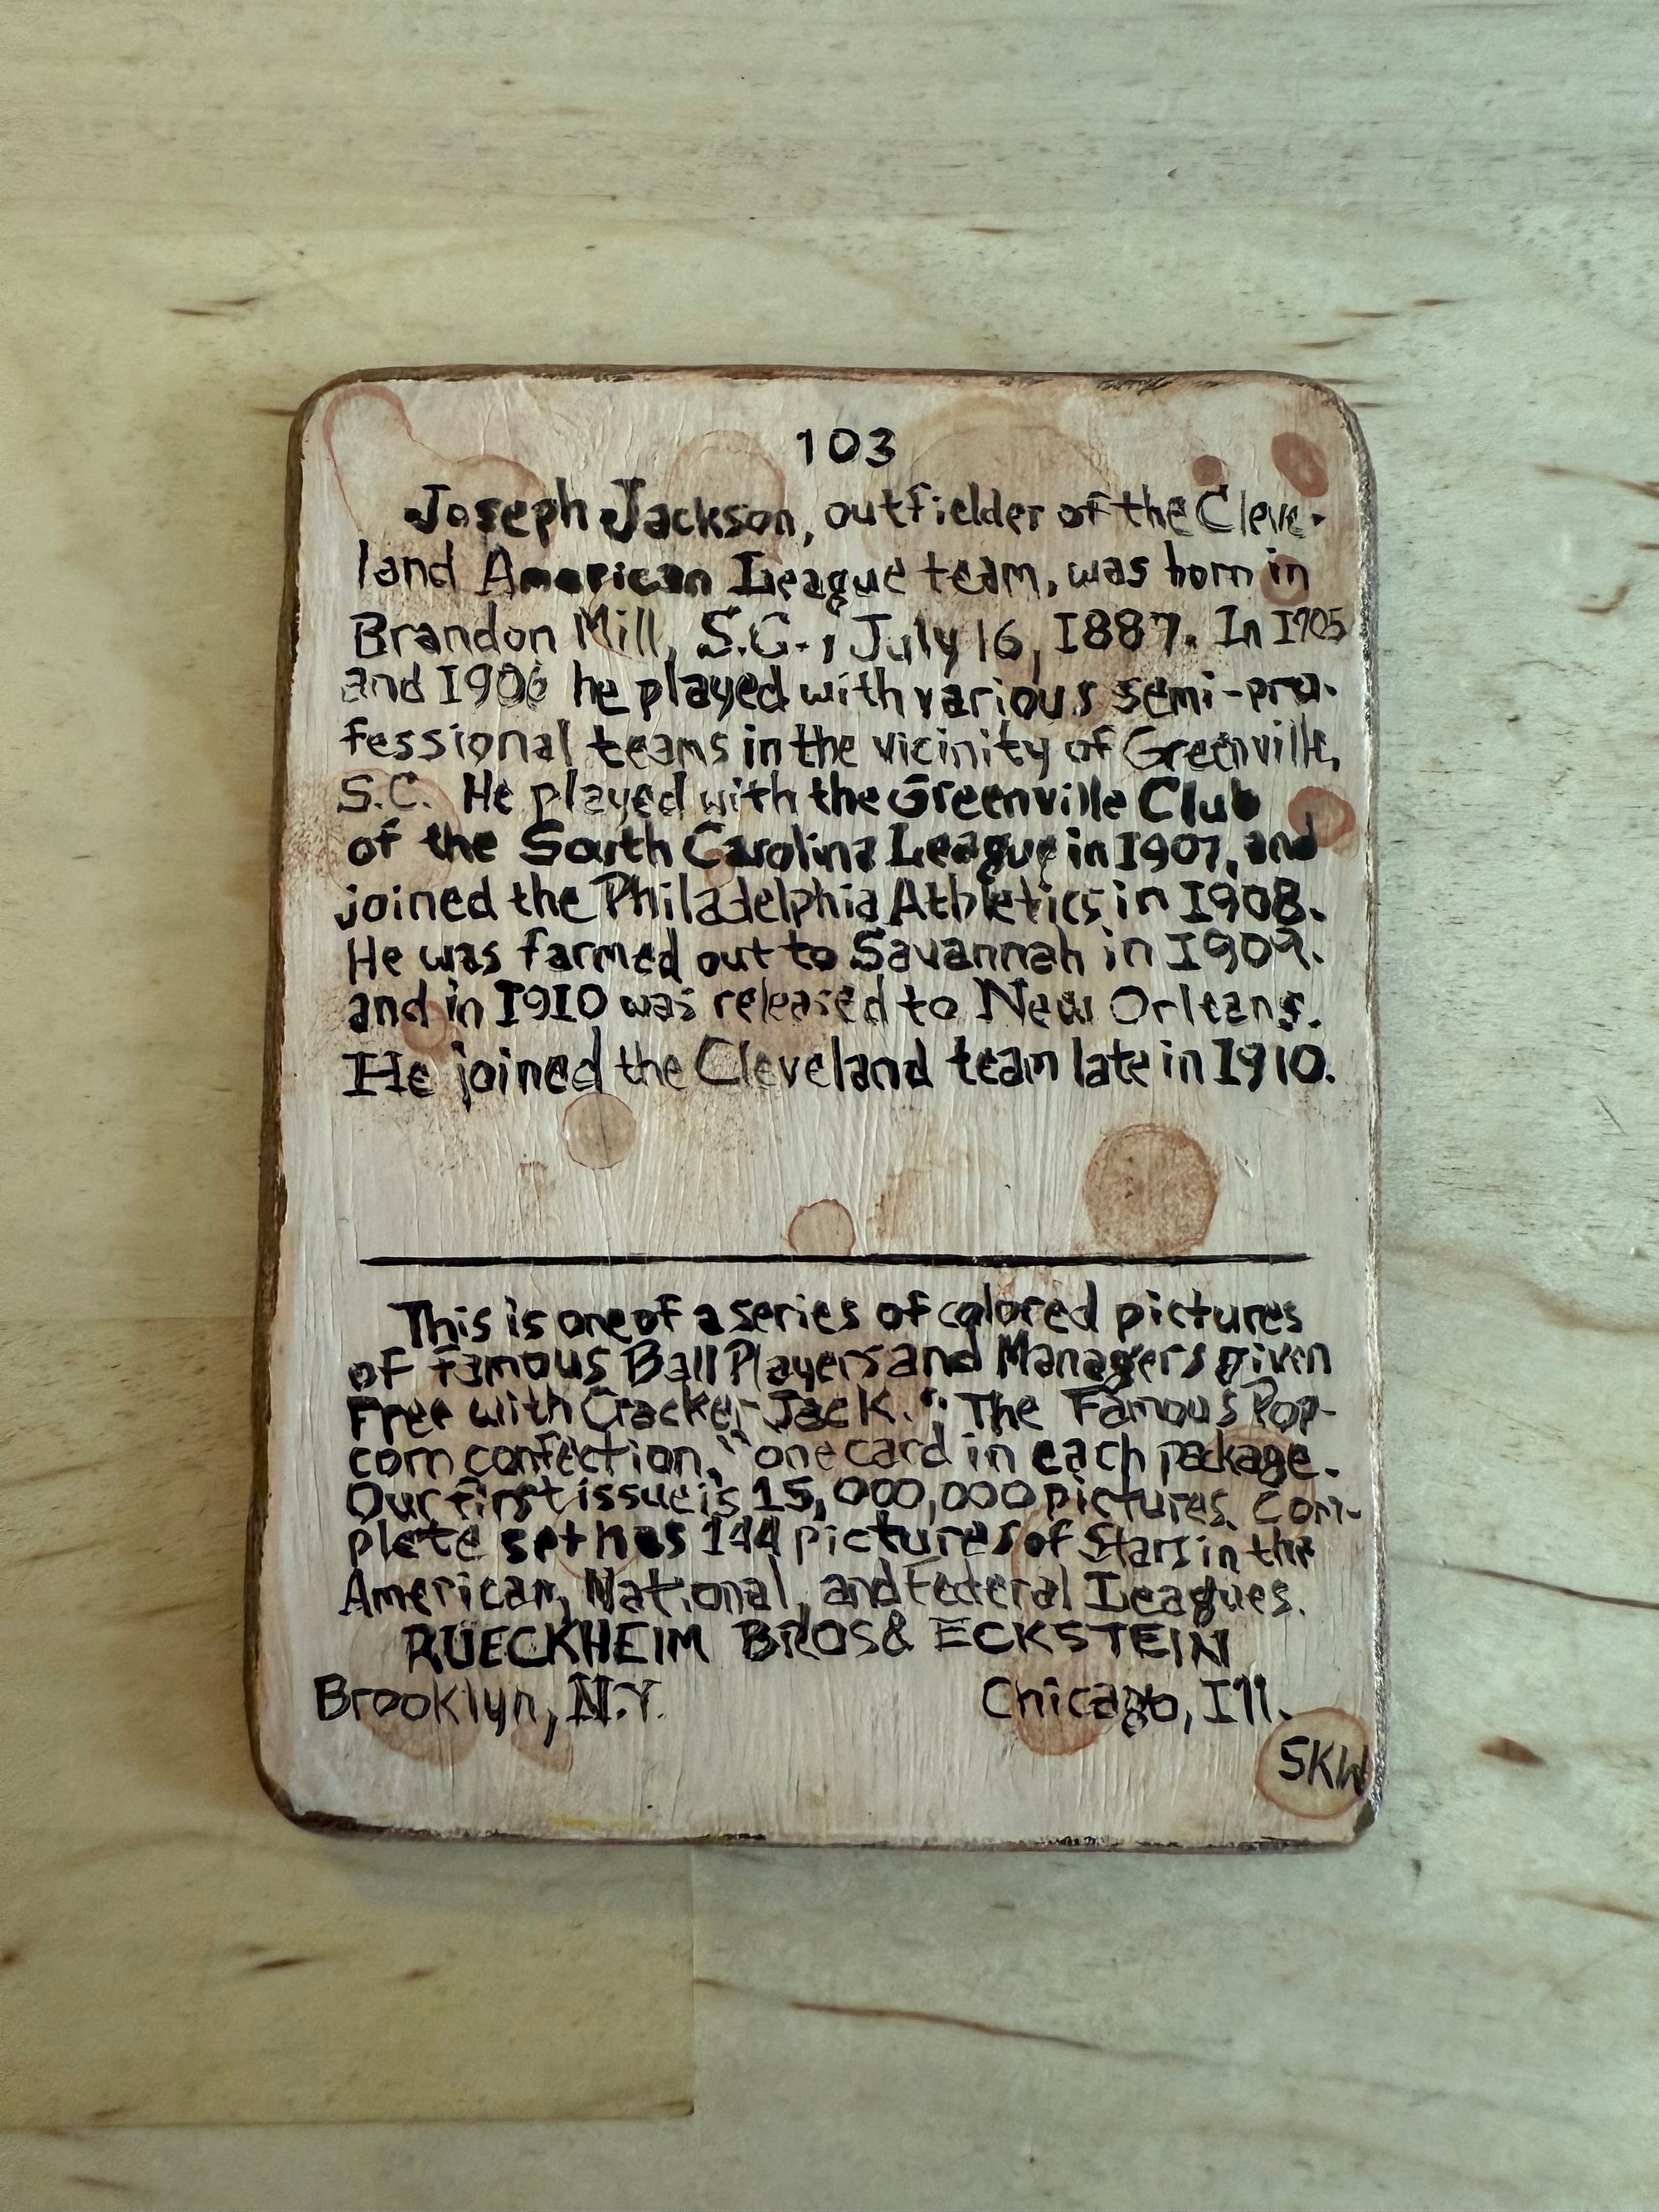 103
Joseph Jackson, outfielder of the Cleve-
land American League team, was born in
Brandon Mill, S.C., July 16, 1887. In 1905
and 1906 he played with various semi-pro-
fessional teams in the vicinity of Greenville,
S.C. He played with the Greenville Club
of the South Carolina League in 1907, and
joined the Philadelphia Athletics in 1908.
He was farmed out to Savannah in 1909.
and in 1910 was released to New Orleans.
He joined the Cleveland team late in 1910.
This is one of a series of colored pictures
of famous Ball Players and Managers given
Free with Cracker Jack. "The Famous Pop-
corn confection," one card in each package.
Our first issue is 15,000,000 pictures. Com-
plete set has 144 pictures of Stars in the
American, National, and Federal Leagues.
RUECKHEIM BROS & ECKSTEIN
Brooklyn, N.Y. Chicago, Ill.
SKW